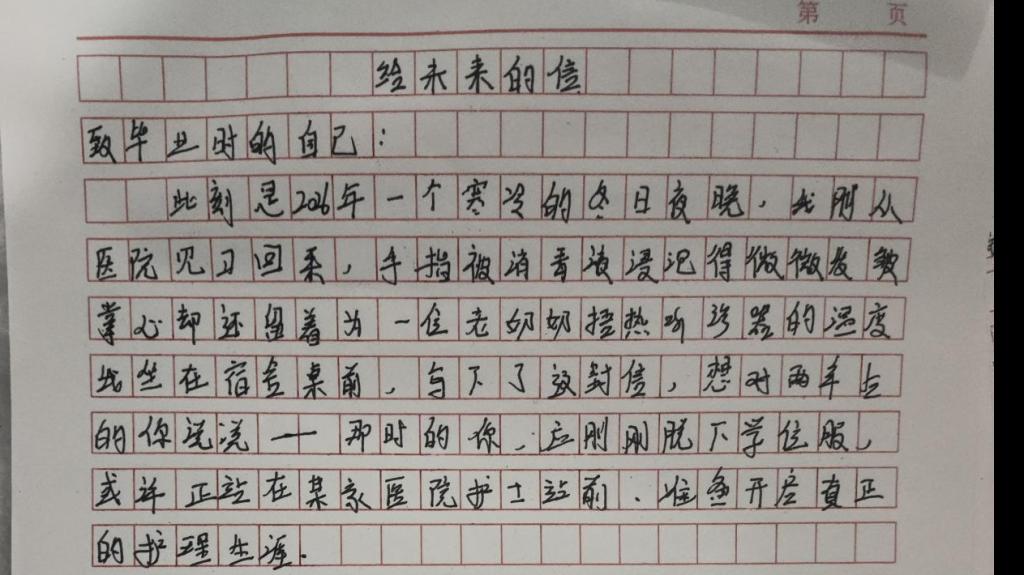 第 页
给未来的信
致毕业时的自己：
此刻是2026年一个寒冷的冬日夜晚，我刚从
医院见习回来，手指被消毒液浸泡得微微发皱
掌心却还留着为一位老奶奶捂热听诊器的温度
我坐在宿舍桌前，写下了这封信，想对两年后
的你说说——那时的你，应刚刚脱下学位服，
或许正站在某家医院护士站前，准备开启真正
的护理生涯.